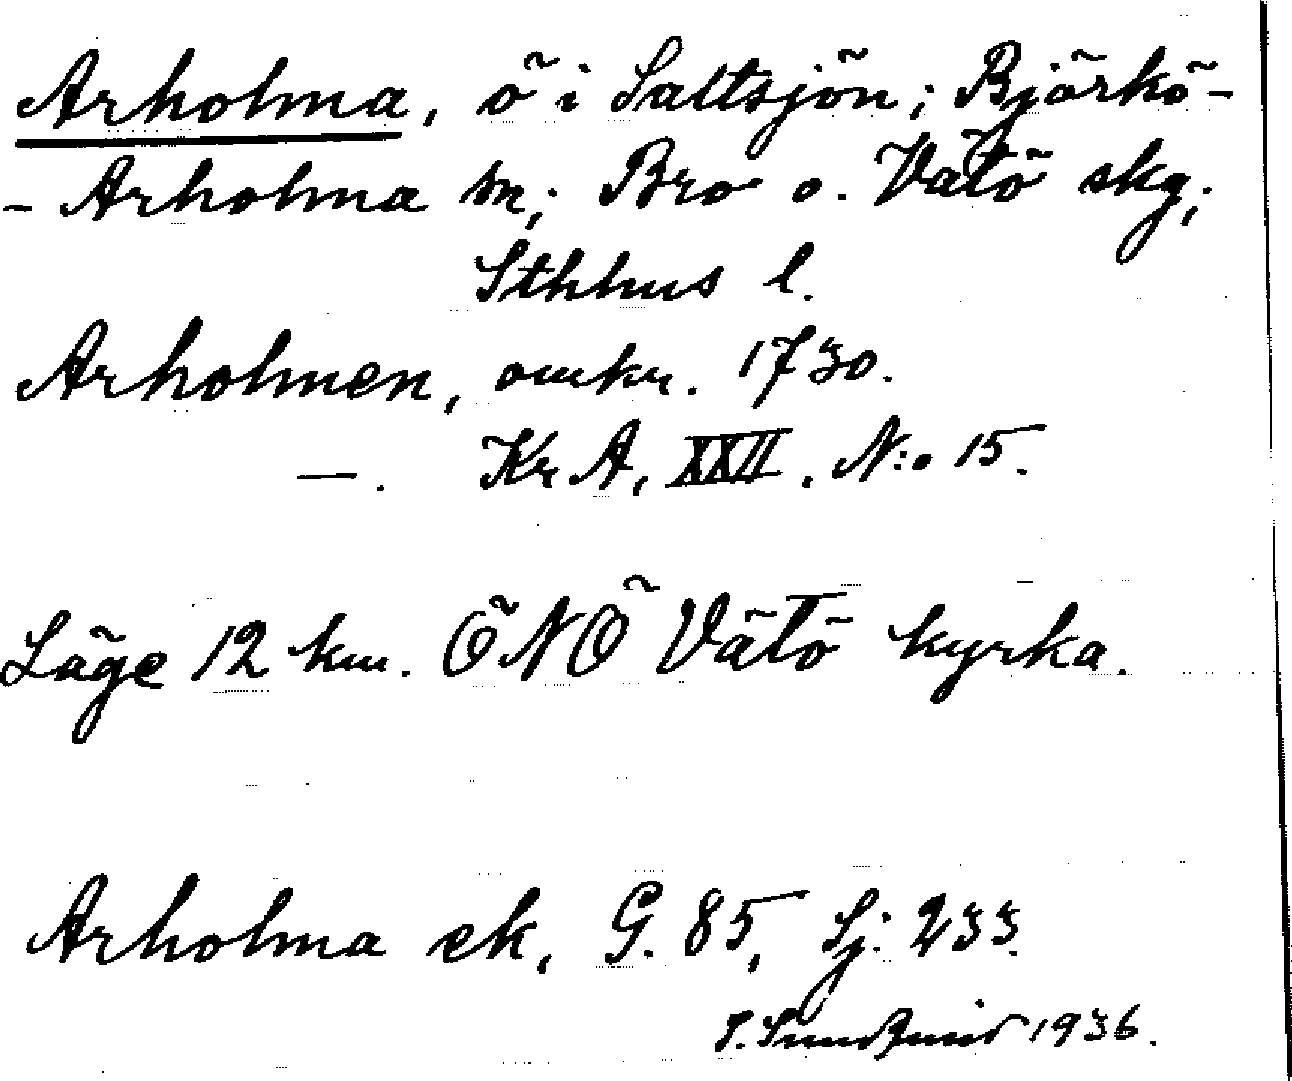 Arholma, ö i Saltsjön; Björkö-
- Arholma sn; Bro o. Vätö skg;
Sthhus l.
Arholmen, omkr. 1730.
—. Kr A, XXII. N:o 15.
Läge 12 km. ÖNÖ Vätö kyrka.
Arholma ek, G. 85, Sj: 233.
1936.